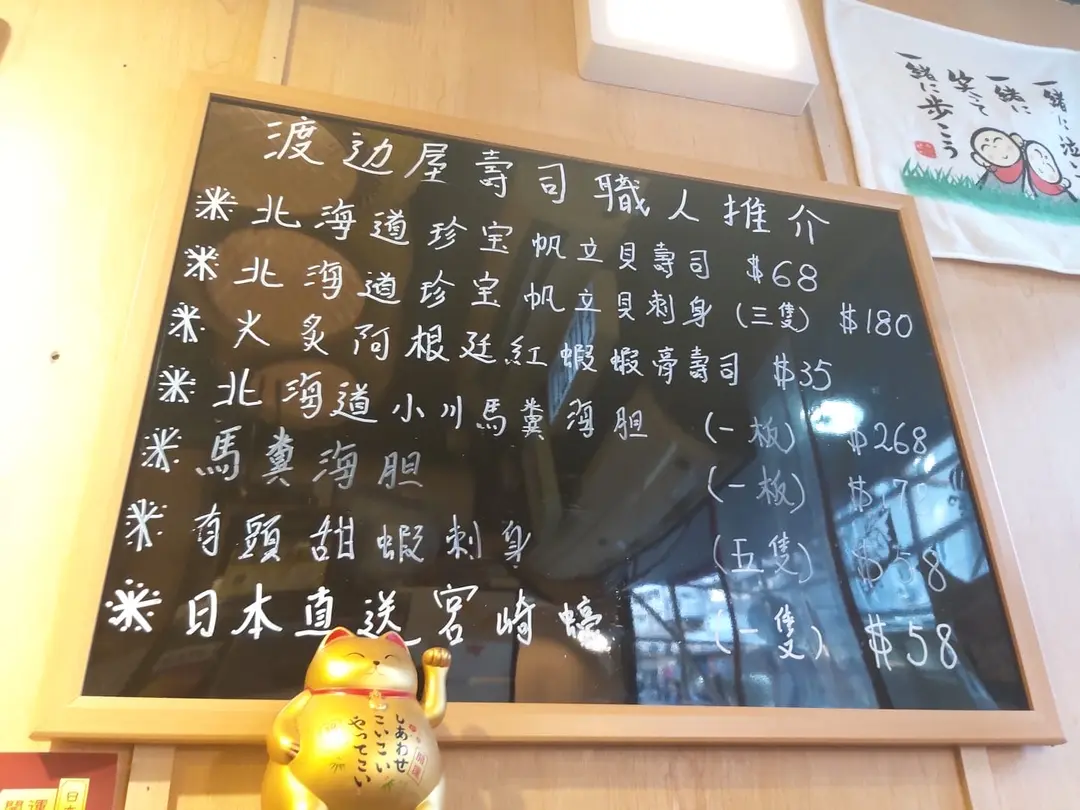 渡边屋壽司職人推介
※北海道珍宝帆立貝壽司 $68
※北海道珍宝帆立貝刺身(三隻) $180
※火炙阿根廷紅蝦蝦膏壽司 $35
※北海道小川馬糞海胆 (一板) $268
※馬糞海胆 (一板)
※有頭甜蝦刺身 (五隻) $58
※日本直送宮崎蠔 (一隻) $58
一緒に泣いて
一緒に
笑って
一緒に歩こう
しあわせ
こいこい
やってこい
開運
開運
日本